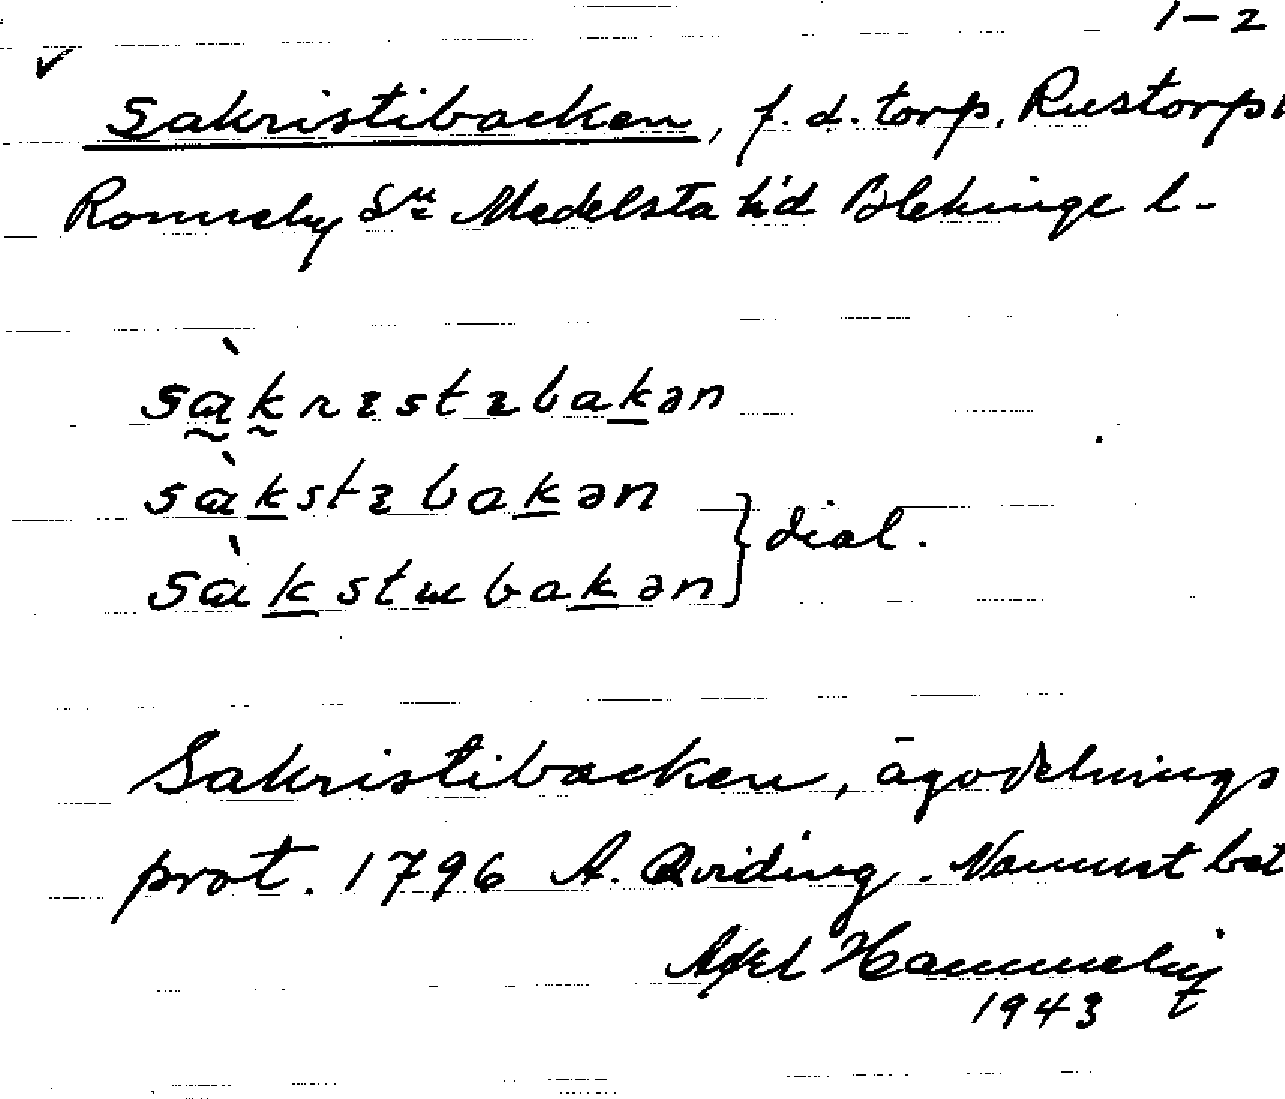 1-2
✓
Sakristibacken, f.d. torp, Rustorps
Ronneby Sn Medelsta hd Blekinge l-
sàkrɪstɪbakən
sàkstɪbakən
sàkstɯbakən } dial.
Sakristibacken, ägodelnings
prot. 1796 A. Qviding. Namnet
Axel
1943